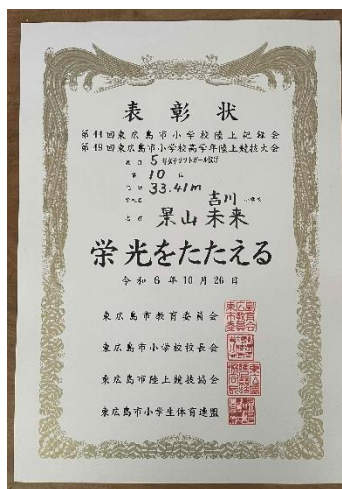 表彰状
第44回東広島市小学校陸上記録会
第19回東広島市小学校高学年陸上競技大会
種目 5年女子ソフトボール投げ
第 10 位
記録 33.41m
学校名 吉川 小学校
氏名 景山 未来
栄光をたたえる
令和 6 年 10 月 26 日
東広島市教育委員会
東広島市小学校校長会
東広島市陸上競技協会
東広島市小学生体育連盟